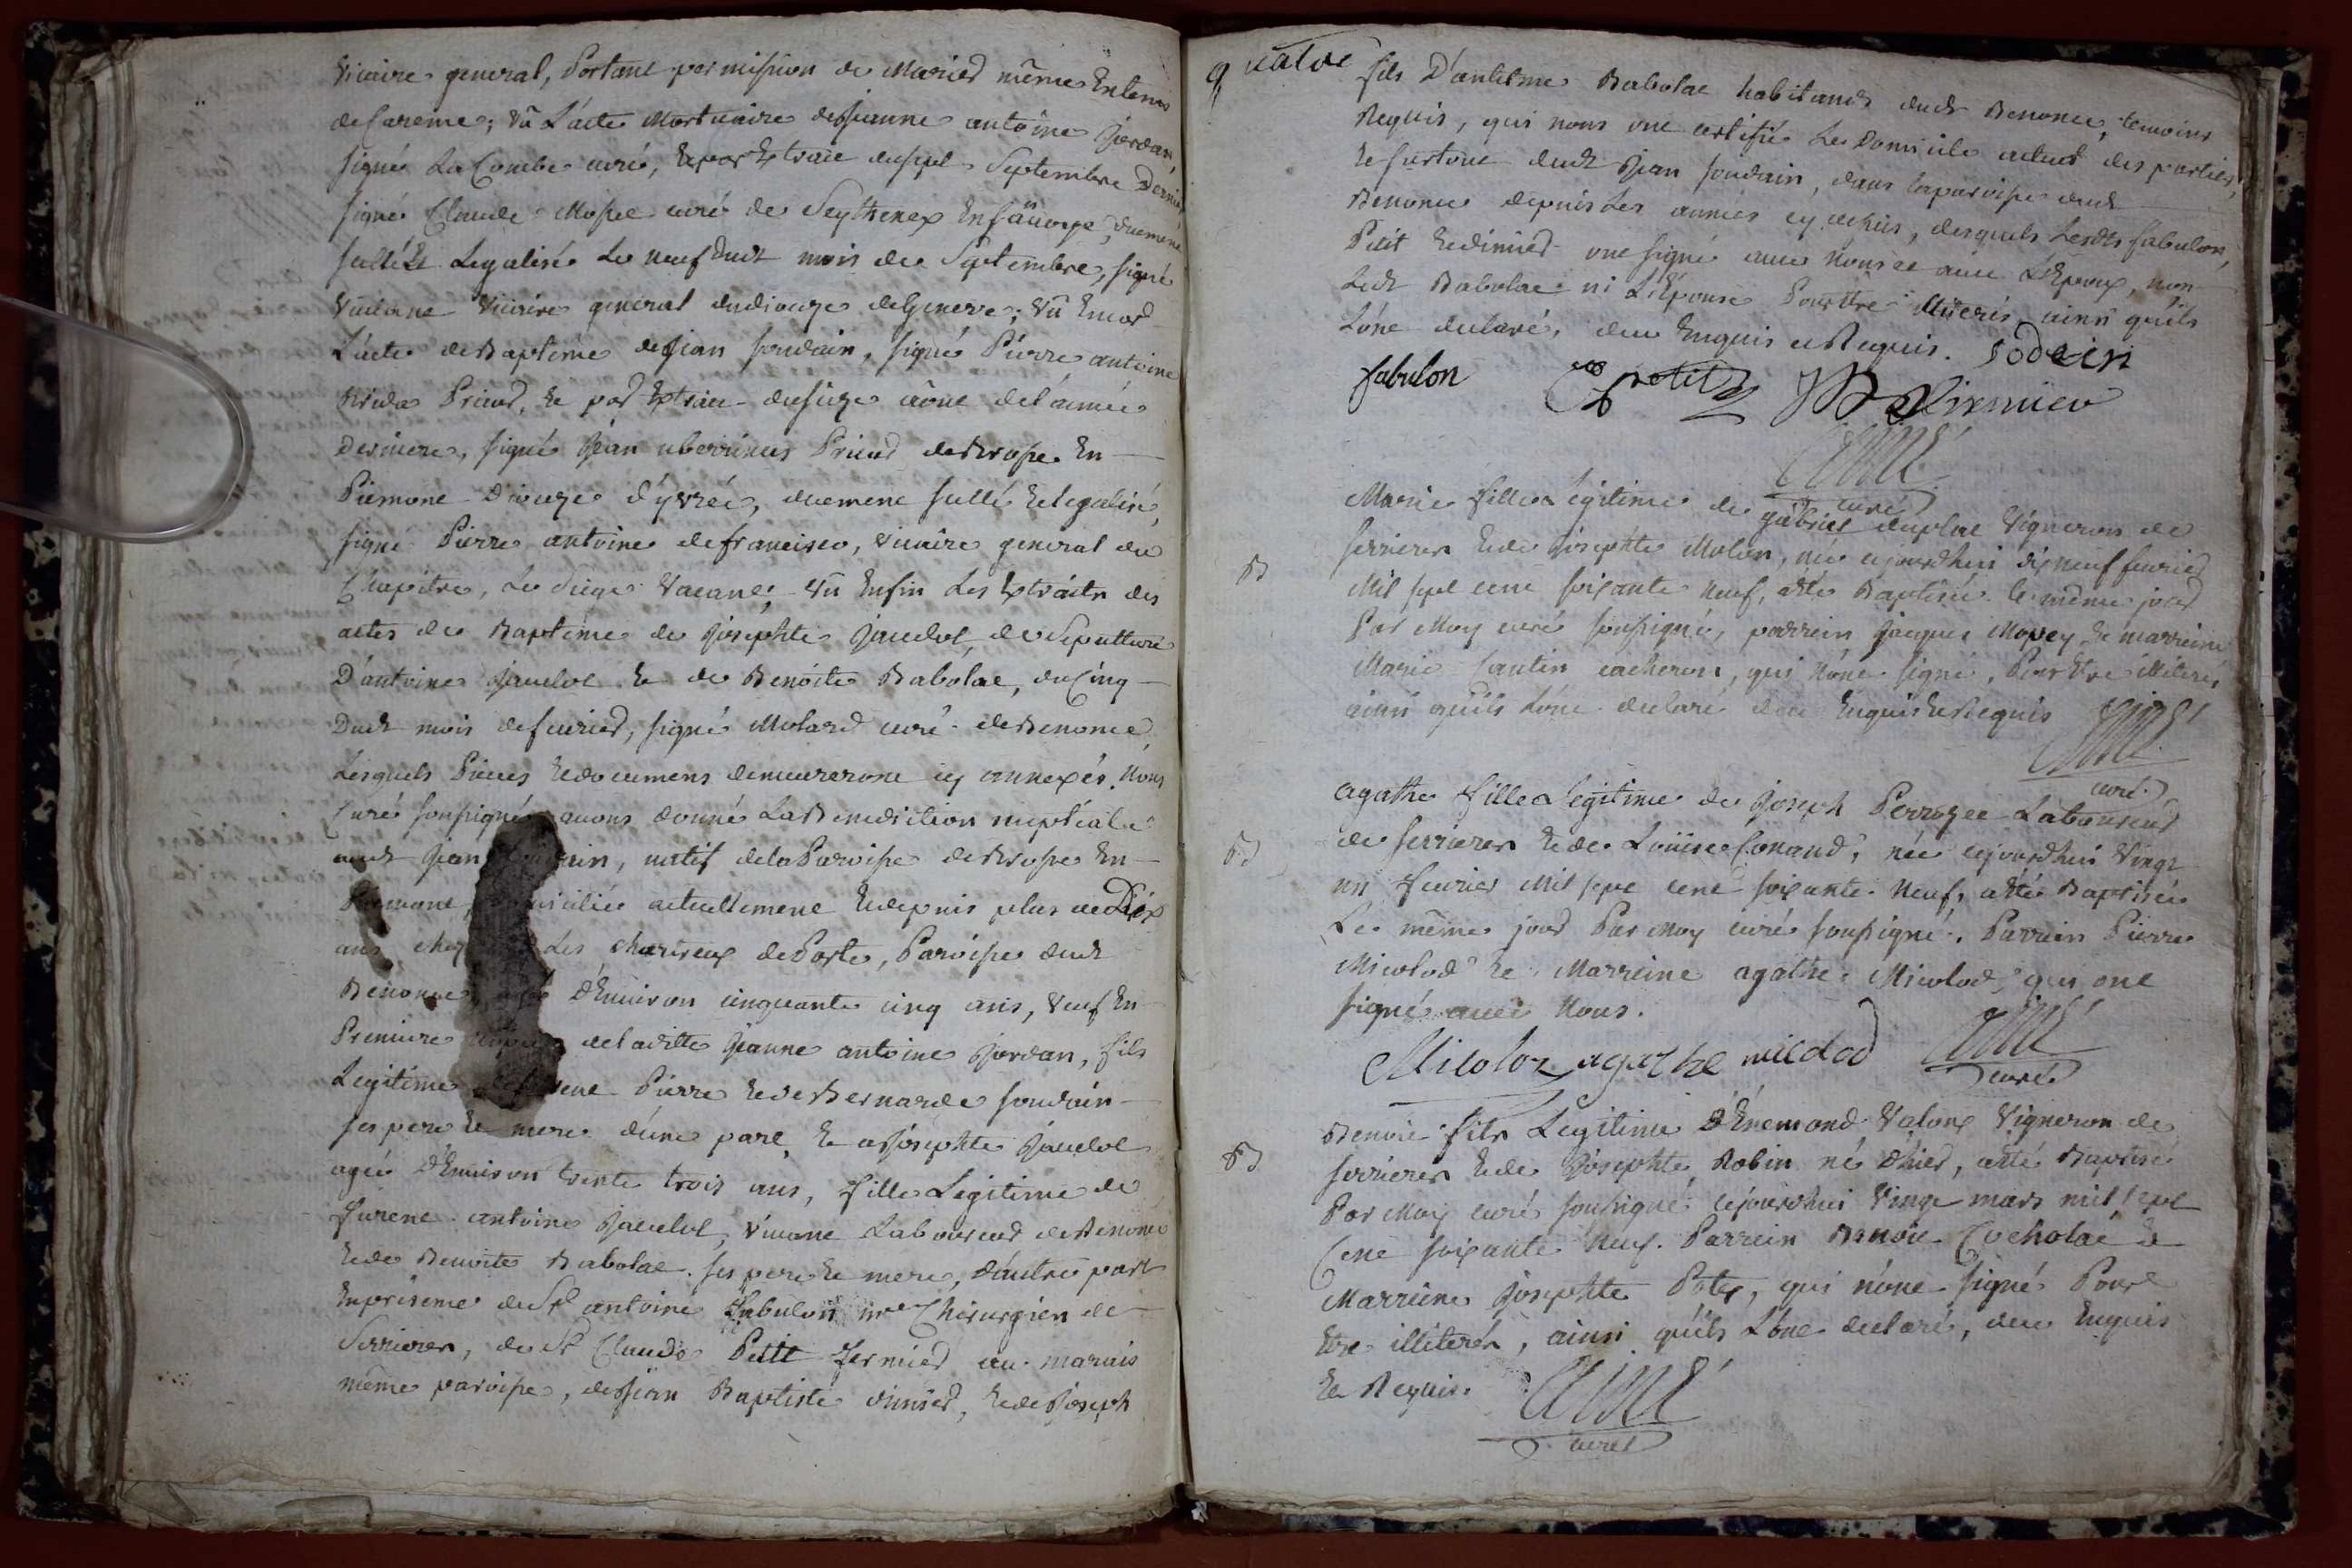 Vicaire general, Portant permission de Marier même En tems
de Careme; vû L'acte Mortuaire de Jeanne antoine Jordan,
signé La Combe curé, Et par Extrait du sept Septembre Dernier
signé Claude Mossel curé de Seythenex En savoye, duement
sellé Et Legalisé Le neuf dudt mois de Septembre, signé
vicaire general du dioceze de Geneve; vû Encor
L'acte de Baptême de Jean soudain, signé Pierre antoine
Prieur, Et par Extrait du seize août de l'année
Derniere, signé Jean ubertinus Prieur de Brosse En
Piemont Dioceze d'yvrée, duement sellé Et legalisé,
signé Pierre antoine de francisco, vicaire general du
Chapitre, Le Siege Vacant; vû Enfin Les Extraits des
actes de Baptême de Josephte Jauelot, de Sepulture
D'antoine Jauelot Et de Benoite Babolat, du Cinq
Dudt mois de fevrier, signé Molard curé de Benonce,
Lesquels Pieces Et documens demeureront icy annexés. Nous
Curé soussigné avons donné La Benediction nuptiale
audt Jean natif de la Paroisse de Brosse En
actuellement Et depuis plus de Dix
ans, chez Les chartreux de Porte, Paroisse dudt
Benonce, D'Environ cinquante cinq ans, veuf En
Premiere de laditte Jeanne antoine Jordan, fils
Legitime Pierre Et de Bernarde soudain
ses pere Et mere d'une part, Et a Josephte Jauelot
agée D'Environ trente trois ans, fille Legitime de
furent antoine Jauelot, vivant Laboureur de Benonce
Et de Benoite Babolat ses pere Et mere, d'autre part
En présence de Sr antoine fabulon me Chirurgien de
Serrieres, de Sr Claude Petit fermier au marais
même paroisse, de Jean Baptiste dimier, Et de Joseph
quatre
fils D'antelme Babolat habitants dudt Benonce, temoins
Requis, qui nous ont certifié Le Domicile actuel des parties,
Et surtout dudt Jean soudain, dans la paroisse dudt
Benonce depuis Les années cy dessus, desquels Lesdts fabulon,
Petit Et dimier ont signé avec Nous et avec L'Epoux, non
Ledt Babolat ni L'Epouse Pour Etre illiterés ainsi qu'ils
L'ont declaré, de ce Enquis et Requis. sodein
fabulon petit JB Dimier
Aimé
curé
Marie fille Legitime de gabriel duplat Vigneron de
serrieres Et de Josephte Molin, née cejourdhui dix neuf fevrier
Mil sept cent soixante neuf, a été Baptisée le même jour
Par Moy curé soussigné, parrein Jacques Et marreine
Marie qui n'ont signé, Pour Etre illiterés
ainsi qu'ils L'ont declaré de ce Enquis Et Requis
B
Aimé
curé
agathe fille Legitime de Joseph Perrozet Laboureur
de serrieres Et de Loüise Conand, née cejourdhui vingt
B
un fevrier Mil sept cent soixante neuf, a été Baptisée
Le même jour Par Moy curé soussigné. Parrein Pierre
Micolod Et Marreine agathe Micolod, qui ont
signé avec Nous.
Micoloz agathe micolod Aimé
curé
Benoit fils Legitime D'Enemond Valoux Vigneron de
B
serrieres Et de Josephte Robin né D'hier, a été Baptisé
Par Moy curé soussigné cejourdhui vingt mars mil sept
Cent soixante Neuf. Parrein Benoit Cocholat Et
Marreine Josephte qui n'ont signé Pour
Etre illiterés, ainsi qu'ils L'ont declaré, de ce Enquis
Et Requis.
Aimé
curé